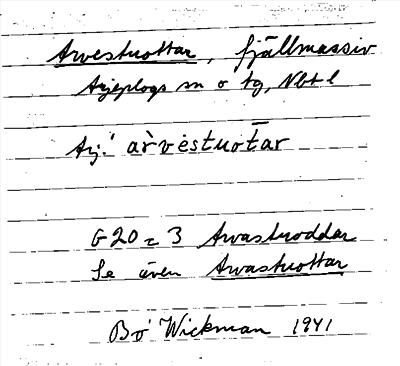 Arvestuottar, fjällmassiv
Arjeplogs sn o tg, Nbt l
Arj.! àr̀vėstuōtar
G20 = 3 Arvastuoddar
Se även Arvastuottar
Bo Wickman 1941